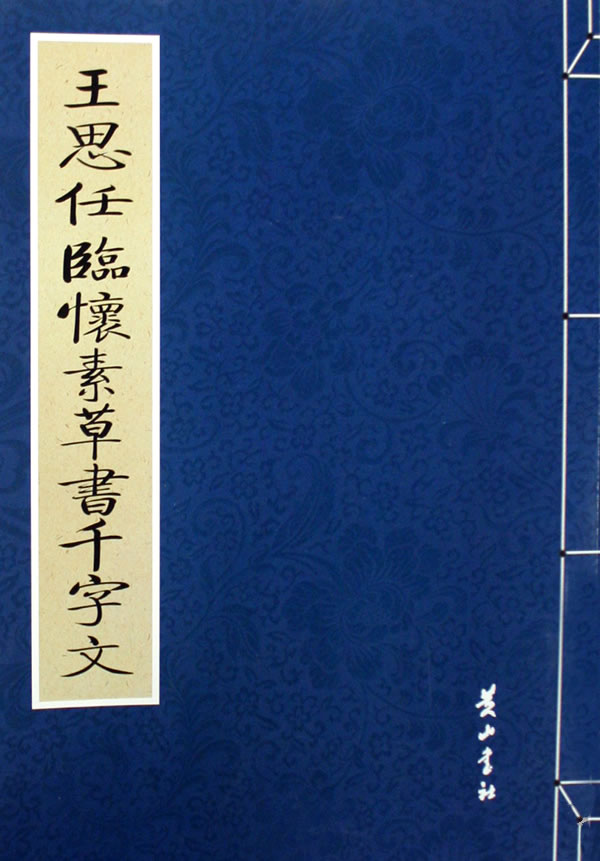 王思任臨懷素草書千字文
黄山書社